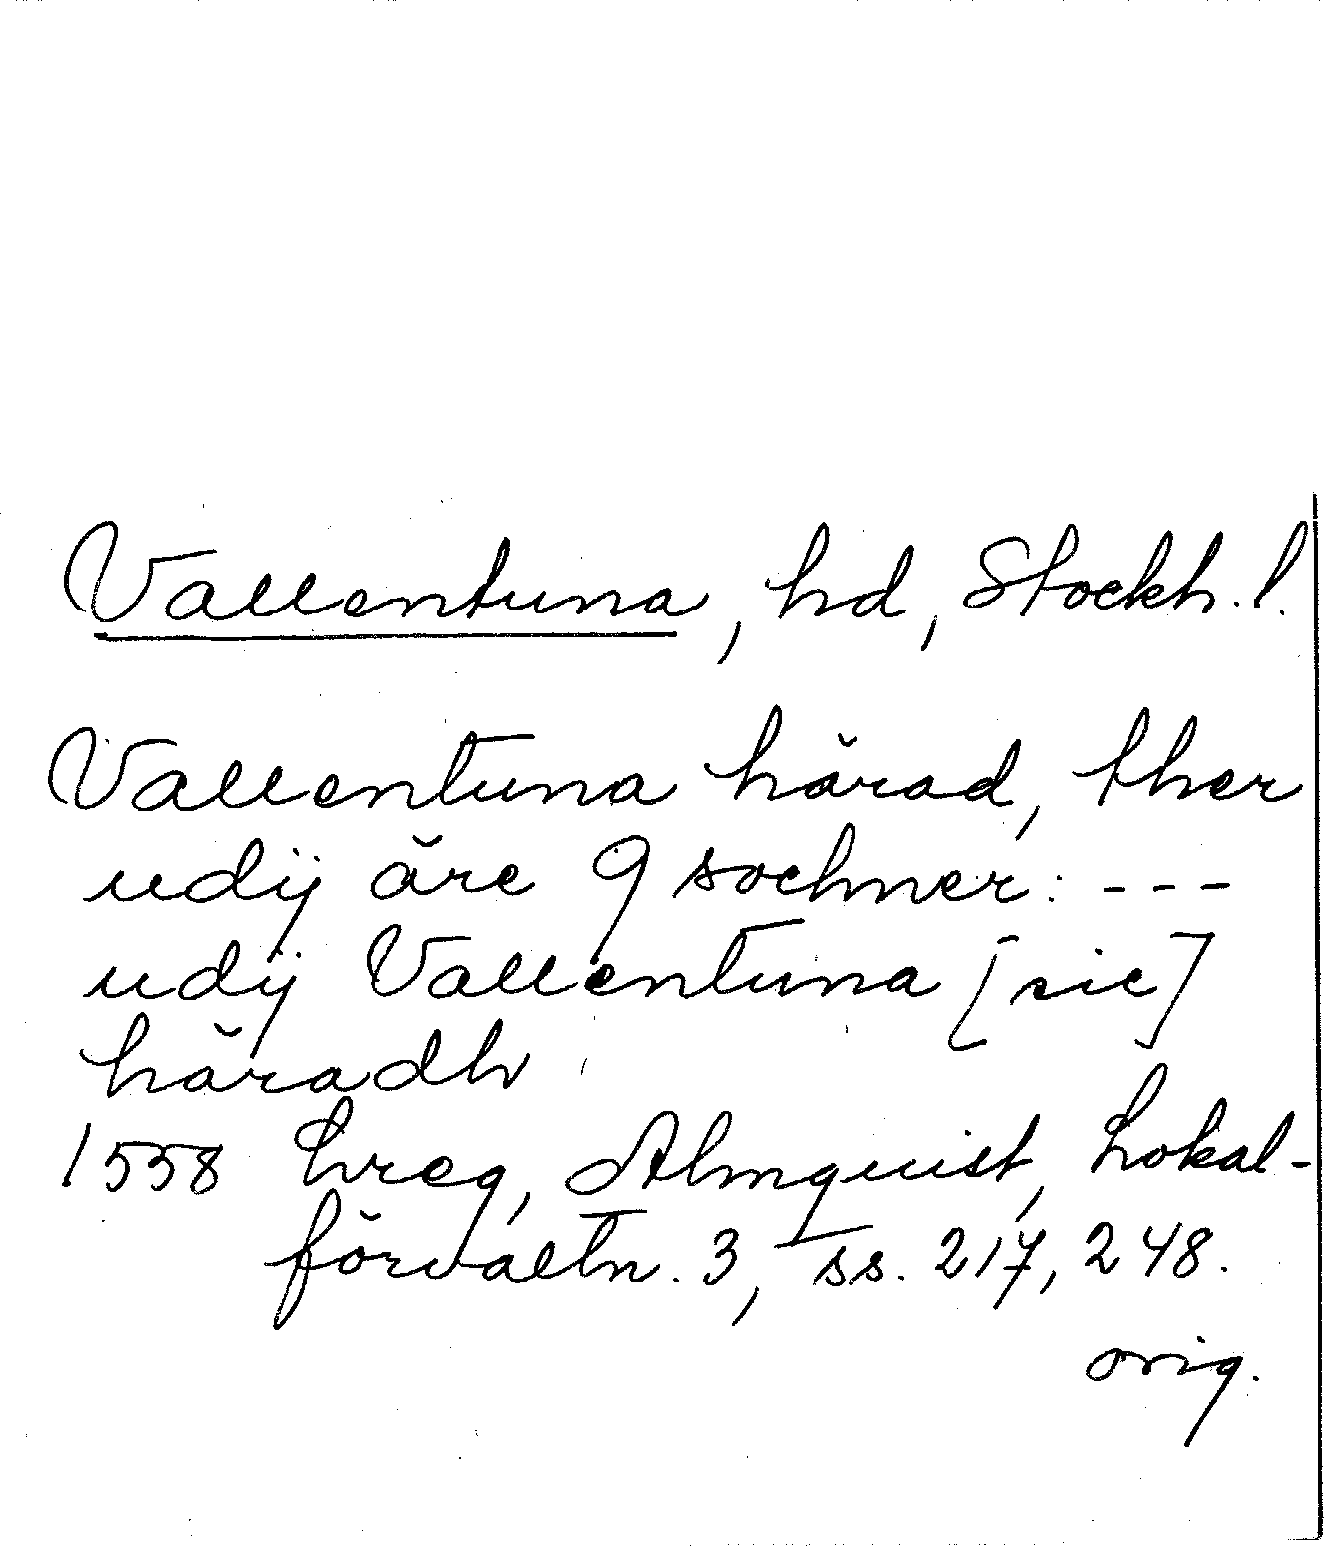 Vallentuna, hd, Stockh. l.
Vallentuna härad, ther
udij äre 9 sochner: ---
udij Vallentuna [sic]
häradh
1558 Lreg, Almquist, Lokal-
förvaltn. 3, ss. 217, 248.
orig.